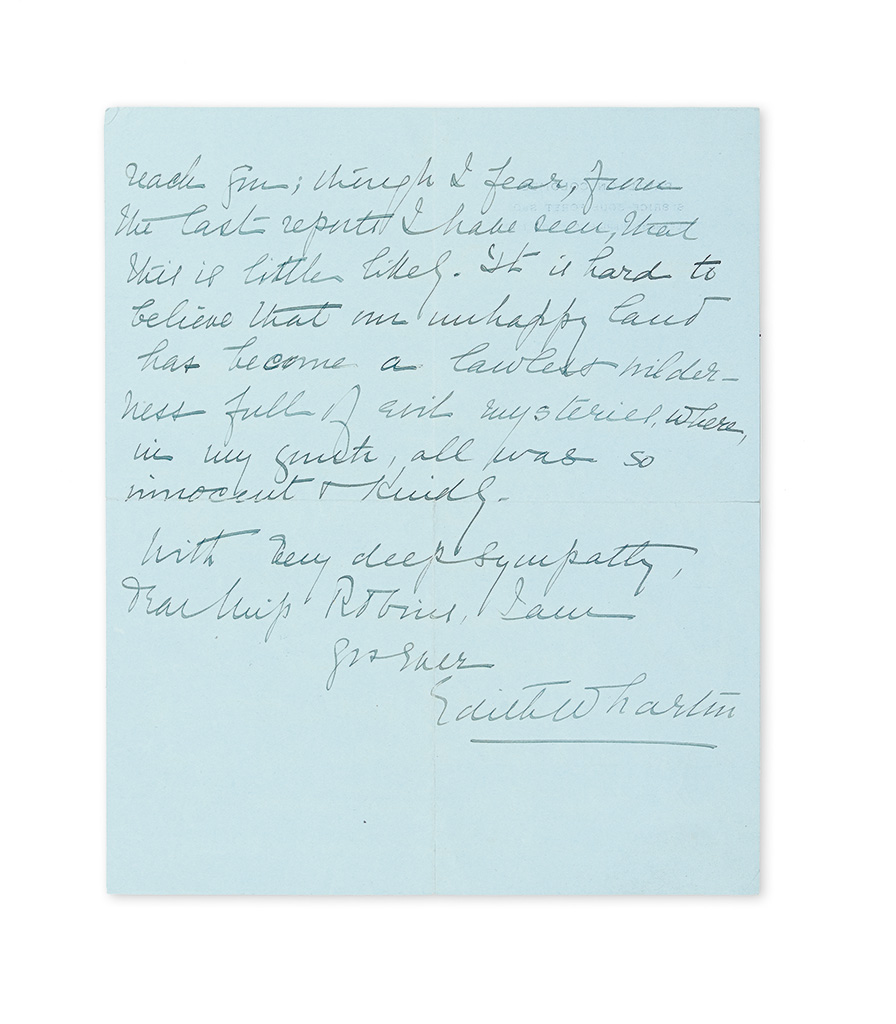 reach you; though I fear, from
the last reports I have seen, that
this is little likely. It is hard to
believe that our unhappy land
has become a lawless wilder-
ness full of evil mysteries, where,
in my youth, all was so
innocent & kindly.
With very deep sympathy,
Dear Miss Robins, I am
Yrs Ever
Edith Wharton